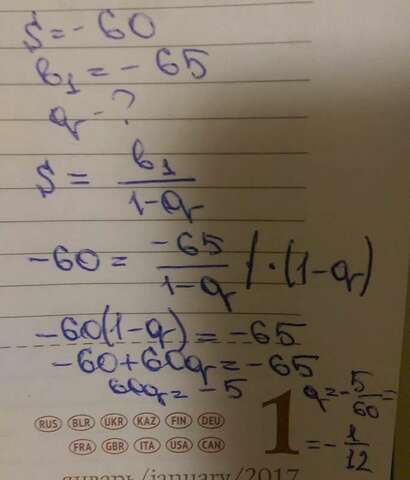 S = -60
b₁ = -65
q - ?
S = b₁ / 1-q
-60 = -65 / 1-q | · (1-q)
-60(1-q) = -65
-60+60q = -65
60q = -5 q = -5/60 =
= -1/12
1
RUS BLR UKR KAZ FIN DEU
FRA GBR ITA USA CAN
январь/january/2017